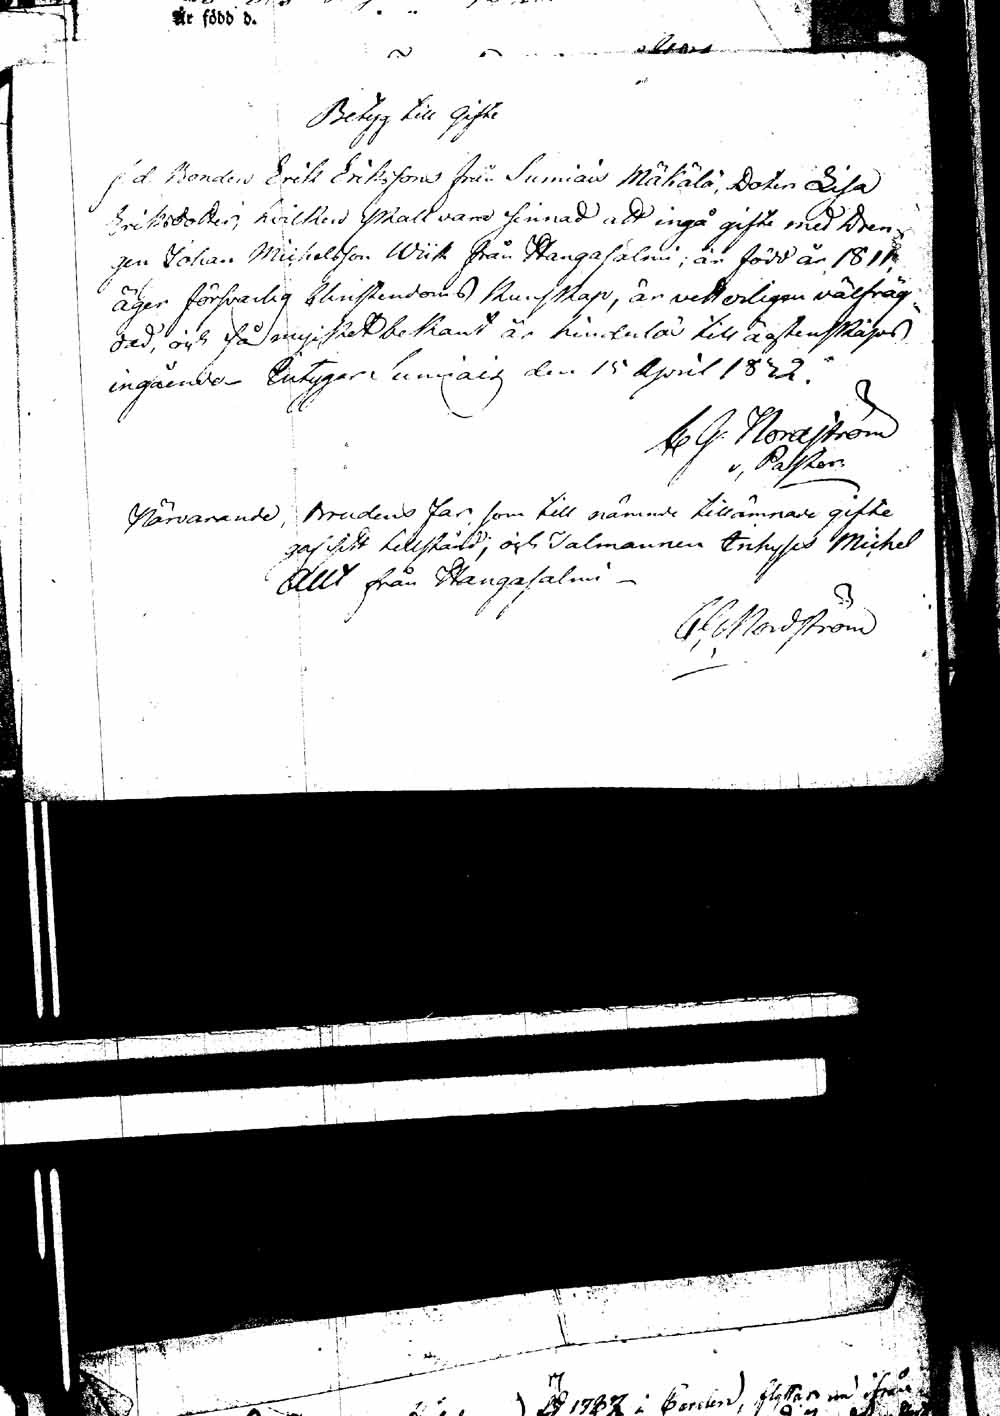 Är född d.
Betyg till Gifte
f d. Bonden Erik Erikssons från Sumiais Mähälä, Doter Lisa
Eriksdotter, hvilken skall vara sinnad att ingå gifte med Dren-
gen Johan Michelsson Wiik från Hangasalmi, är född år 1811,
äger försvarlig Christendoms Kunskap, är vetterligen välfräg-
dad, och så mycket bekant är hinderlös till ägtenskaps
ingående. Intygar Sumiais den 15 April 1832.
C G. Nordström
v, Pastor.
Närvarande, Brudens Far, som till nämnde tillämnade gifte
gaf sitt tillstånd; och Talmannen Inhyses Michel
från Hangasalmi –
C, G Nordström
1787 i flyttar in ifrån